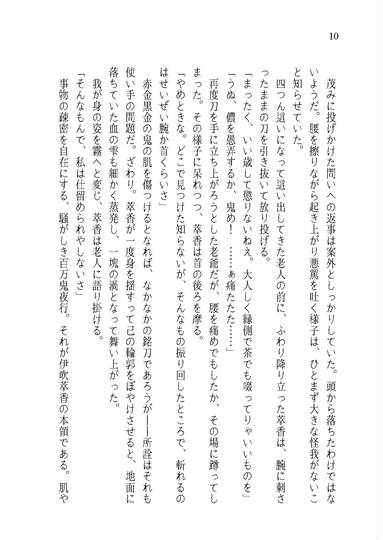 10
茂みに投げかけた問いへの返事は案外としっかりしていた。頭から落ちたわけではな
いようだ。腰を擦りながら起き上がり悪罵を吐く様子は、ひとまず大きな怪我がないこ
と知らせていた。
四つん這いになって這い出してきた老人の前に、ふわり降り立った萃香は、腕に刺さ
ったままの刀を引き抜いて放り投げる。
「まったく、いい歳して懲りないねえ。大人しく縁側で茶でも啜ってりゃいいものを」
「うぬ、儂を愚弄するか、鬼め！　……ぁ痛たたた……」
再度刀を手に立ち上がろうとした老爺だが、腰を痛めでもしたか、その場に蹲ってし
まった。その様子に呆れつつ、萃香は首の後ろを摩る。
「やめときな。どこで見つけた知らないが、そんなもの振り回したところで、斬れるの
はせいぜい腕か首くらいさ」
赤金黒金の鬼の肌を傷つけるとなれば、なかなかの銘刀であろうが――所詮はそれも
使い手の問題だ。ざわり。萃香が一度身を揺すって己の輪郭をぼやけさせると、地面に
落ちていた血の雫も細かく蒸発し、一塊の渦となって舞い上がった。
我が身の姿を霧へと変じ、萃香は老人に語り掛ける。
「そんなもんで、私は仕留められやしないさ」
事物の疎密を自在にする、騒がしき百万鬼夜行。それが伊吹萃香の本領である。肌や